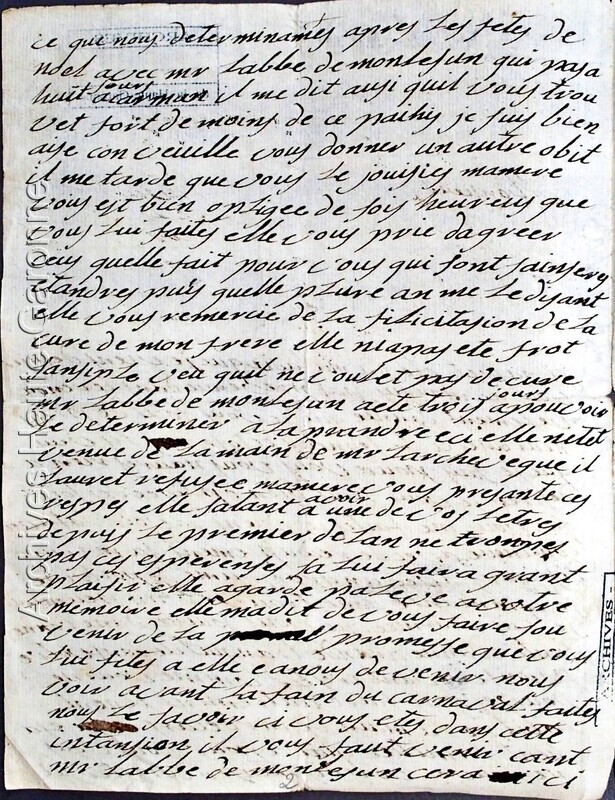 ce que nous determinames apres les fetes de
noel avec mr labbe de montesun qui pasa
huit jours a carman il me dit ausi quil vous trou
vet fort de moins de ce paihis je suis bien
ayse con veuille vous donner un autre obit
il me tarde que vous le jouisies mamere
vous est bien opligee de sois heureus que
vous lui faites elle vous prie dagreer
ceus quelle fait pour vous qui sont sainseres
etandres puis quelle plure an me le disant
elle vous remercie de la filicitasion de la
cure de mon frere elle na pas ete frot
sansiple veu quil ne voulet pas de cure
mr labbe de montesun a ete trois jours a pouvoir
le determiner a la prandre ci elle netet
venue de la main de mr larcheveque il
lauret refusee mamere vous presante ces
respes elle satant a avoir une de vos letres
depuis le premier de lan ne trompes
pas ces esperenses sa lui faira grant
plaisir elle a garde pa leve a votre
memoire elle ma dit de vous faire sou
venir de la promesse que vous
lui fites a elle e a nous de venir nous
voir avant la fain du carnaval faites
nous le savoir ci vous etes dans cette
intansion il vous faut venir cant
mr labbe de montesun cera ici
2
Archives Haute-Garonne
ARCHIVES